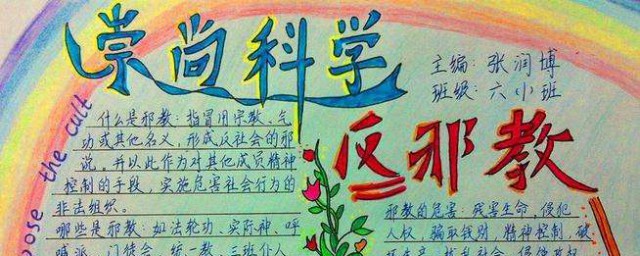 崇尚科学
主编:张润博
班级:六小班
反邪教
pose the cult
什么是邪教:指冒用宗教、气
功或其他名义,形成反社会的邪
说。并以此作为对其他成员精神
控制的手段,实施危害社会行为的
非法组织。
哪些是邪教:如法轮功、实际神、呼
喊派、门徒会、统一教、三班仆人
邪教的危害:残害生命,侵犯
人权,骗取钱财,精神控制,破
坏生产,扰乱社会,侵蚀政权